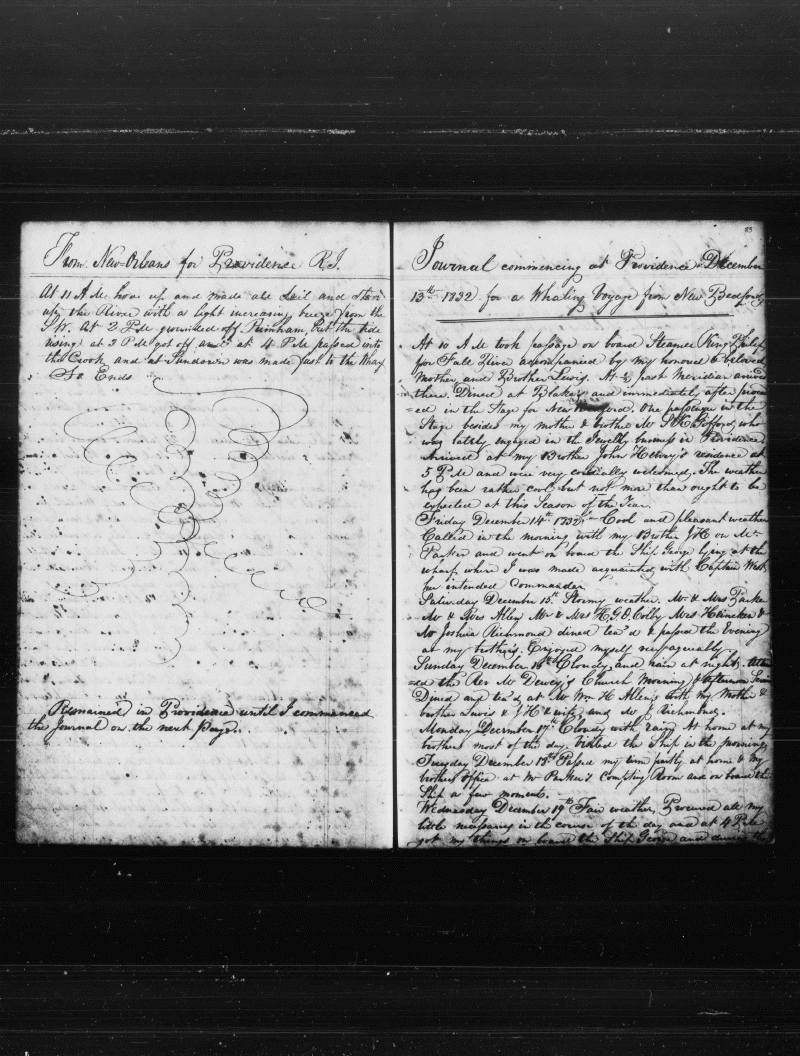 From New-Orleans for Providence R.I.
At 11 A M hove up and made all Sail and stood
up the River with a light increasing breeze from the
S W. At 2 P M grounded off Pawnham, but the tide
rising at 3 P M got off and at 4 P M passed into
the Crook and at Sundown was made fast to the Wharf
So Ends
Remained in Providence until I commenced
the Journal on the next Page.
83
Journal commencing at Providence December
13th 1832 for a Whaling Voyage from New Bedford
At 10 A M took passage on board Steamer King Philip
for Fall River accompanied by my honored & beloved
Mother and Brother Lewis. At ½ past Meridian arrived
there. Dined at Blake's and immediately after proceed
=ed in the Stage for New Bedford. One passenger in the
Stage besides my mother & brother Mr S K Gifford, who
was lately engaged in the Jewelry business in Providence
Arrived at my Brother John Henry's residence at
5 P M and were very cordially welcomed. The weather
has been rather cool but not more than ought to be
expected at this Season of the Year.
Friday December 14th 1832 Cool and pleasant weather
Called in the morning with my Brother J H on Mr
Parker and went on board the Ship George lying at the
wharf where I was made acquainted with Captain
her intended Commander
Saturday December 15th Stormy weather. Mr & Mrs Parker
Mr & Mrs Allen Mr & Mrs H. G. O. Colby Mrs &
Mr Joshua Richmond dined tea'd & passed the evening
at my brother's. Enjoyed myself very agreeably.
Sunday December 16th Cloudy and rain at night. Attend
=ed the Rev Mr Dewey's Church Morning & afternoon
Dined and tea'd at Mr Wm H Allen's with my Mother &
brother Lewis & J H & wife and Mr J Richmond.
Monday December 17th Cloudy with rain. At home at my
brothers most of the day, visited the Ship in the morning
Tuesday December 18th Passed my time partly at home & my
brothers office at Mr Parker's Compting Room and on board the
Ship a few moments.
Wednesday December 19th Fair weather, Procured all my
little necessaries in the course of the day and at 4 P M
got my things on board the Ship George and